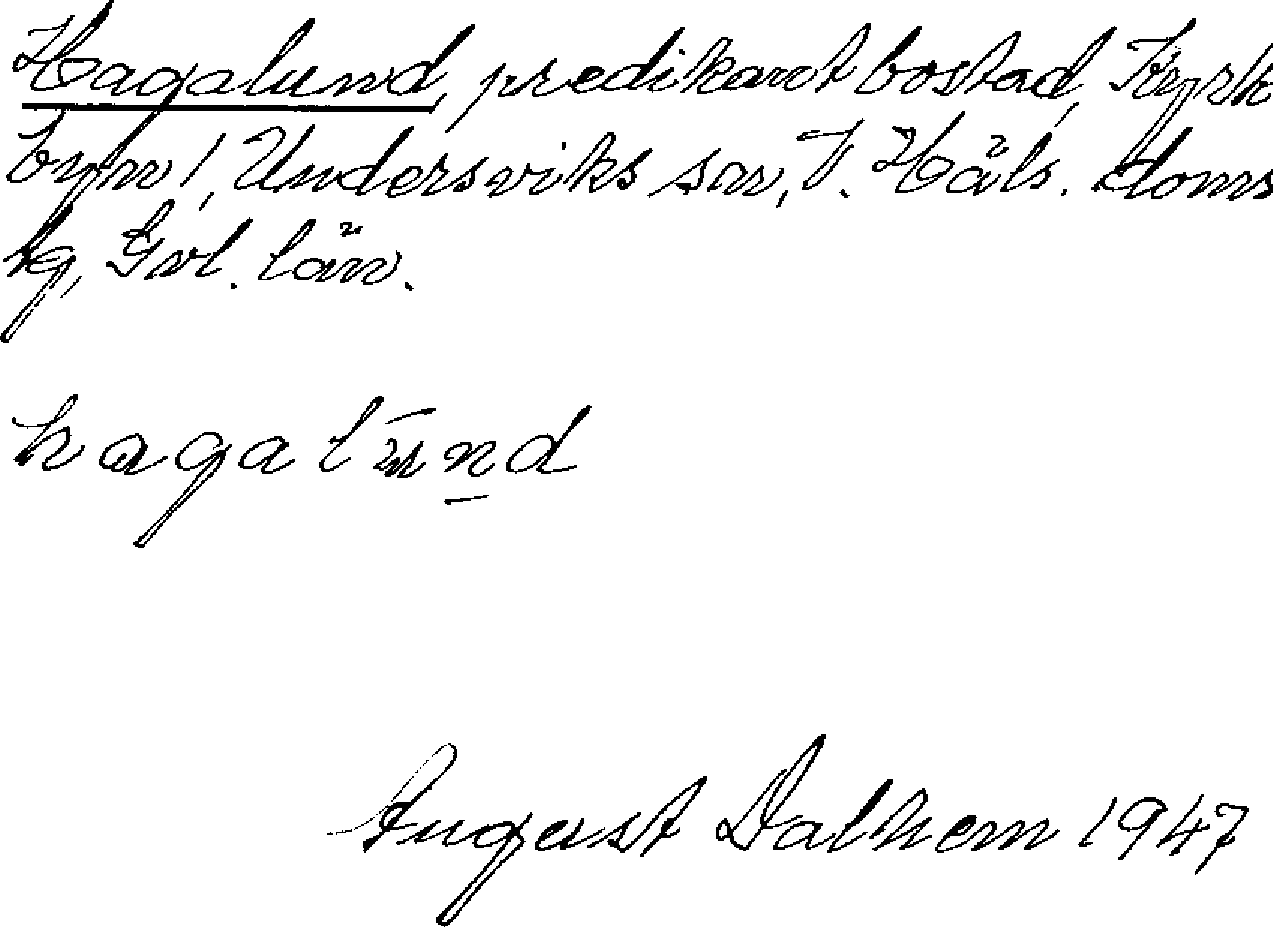 Hagalund, predikantbostad, Kyrk
byn 1, Undersviks sn, V. Häls. doms
g, Gvl. län.
hagalūn̲d
August Dalhem 1947